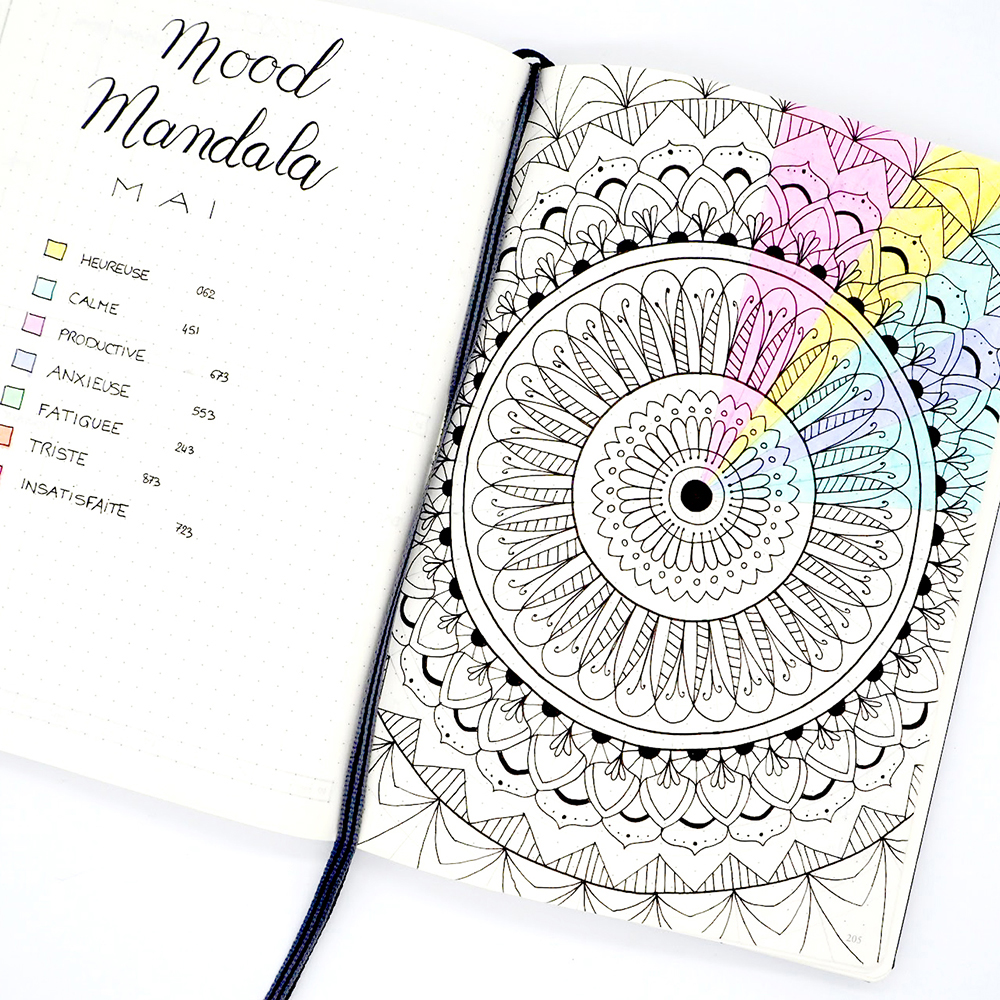 Mood
Mandala
MAI
HEUREUSE 062
CALME 451
PRODUCTIVE 673
ANXIEUSE 553
FATIGUEE 243
TRISTE 873
INSATISFAITE 723
205